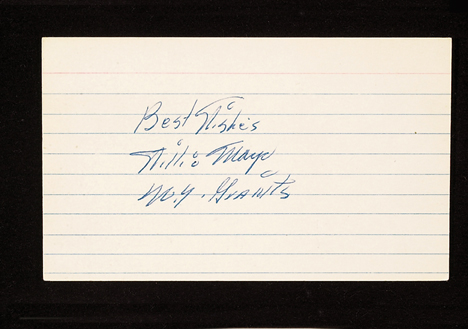 Best Wishes
Willie Mays
N.Y. Giants